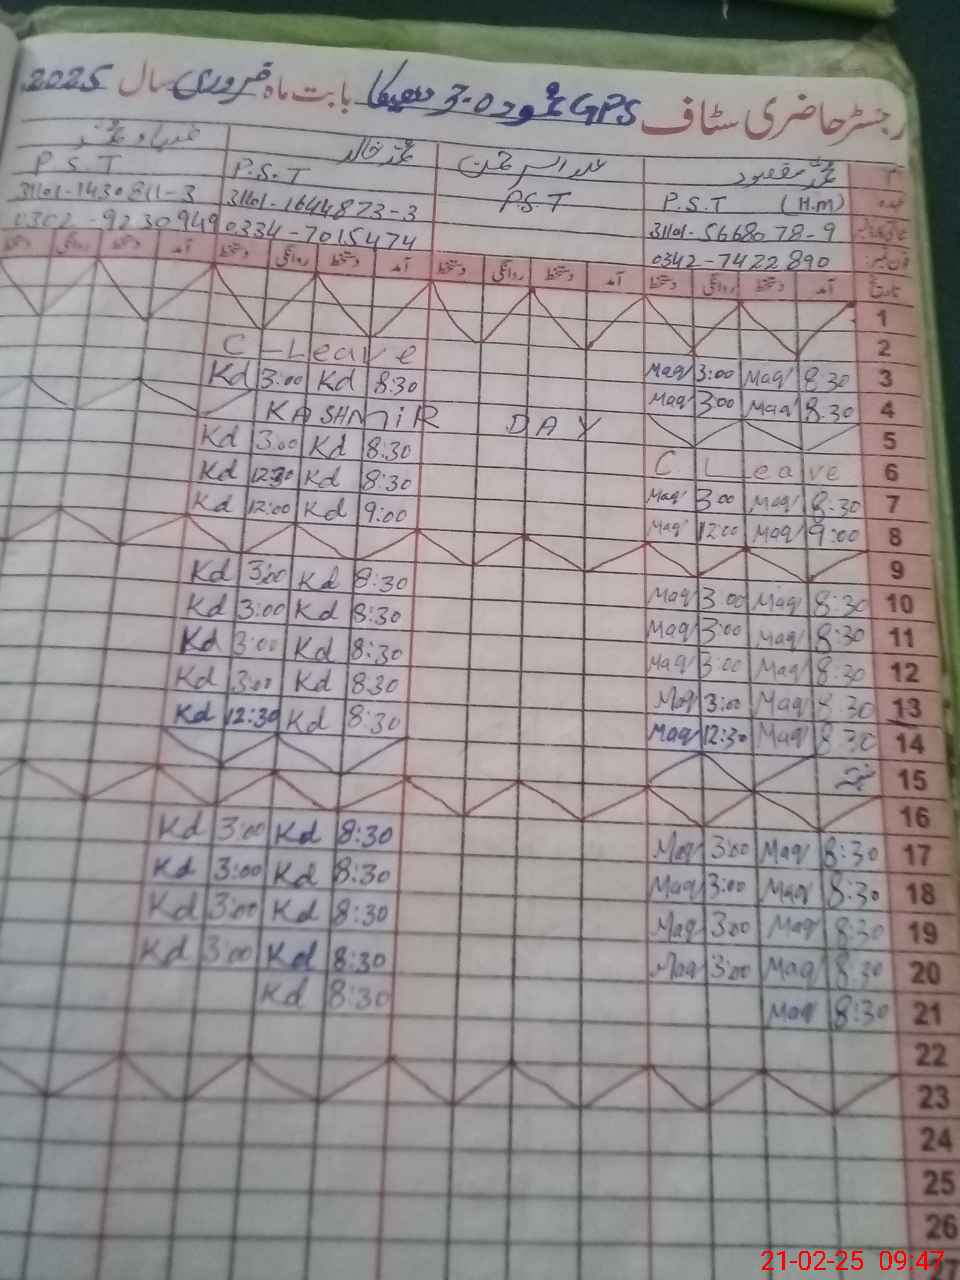 رجسٹر حاضری سٹاف GPS محمود 3-0 بابت ماہ فروری سال 2025
محمد مقصود
محمد خالد
P.S.T (H.M)
P.S.T
P.S.T
P S T
31101-5668078-9
31101-1644873-3
31101-1430811-3
0342-7422890
0334-7015474
0302-9230949
تاریخ آمد دستخط روانگی دستخط آمد دستخط روانگی دستخط آمد دستخط روانگی دستخط آمد دستخط روانگی دستخط
1
2
C-Leave
3 8:30 Maq 3:00 Maq
8:30 Kd 3:00 Kd
4 8:30 Maq 3:00 Maq
KASHMIR DAY
5
8:30 Kd 3:00 Kd
6 C Leave
8:30 Kd 12:30 Kd
7 8:30 Maq 3:00 Maq
9:00 Kd 12:00 Kd
8 9:00 Maq 12:00 Maq
9
8:30 Kd 3:00 Kd
10 8:30 Maq 3:00 Maq
8:30 Kd 3:00 Kd
11 8:30 Maq 3:00 Maq
8:30 Kd 3:00 Kd
12 8:30 Maq 3:00 Maq
830 Kd 3:00 Kd
13 8:30 Maq 3:00 Maq
8:30 Kd 12:30 Kd
14 8:30 Maq 12:30 Maq
15
16
8:30 Kd 3:00 Kd
17 8:30 Maq 3:00 Maq
8:30 Kd 3:00 Kd
18 8:30 Maq 3:00 Maq
8:30 Kd 3:00 Kd
19 8:30 Maq 3:00 Maq
8:30 Kd 3:00 Kd
20 8:30 Maq 3:00 Maq
8:30 Kd
21 8:30 Maq
22
23
24
25
26
27
21-02-25 09:47